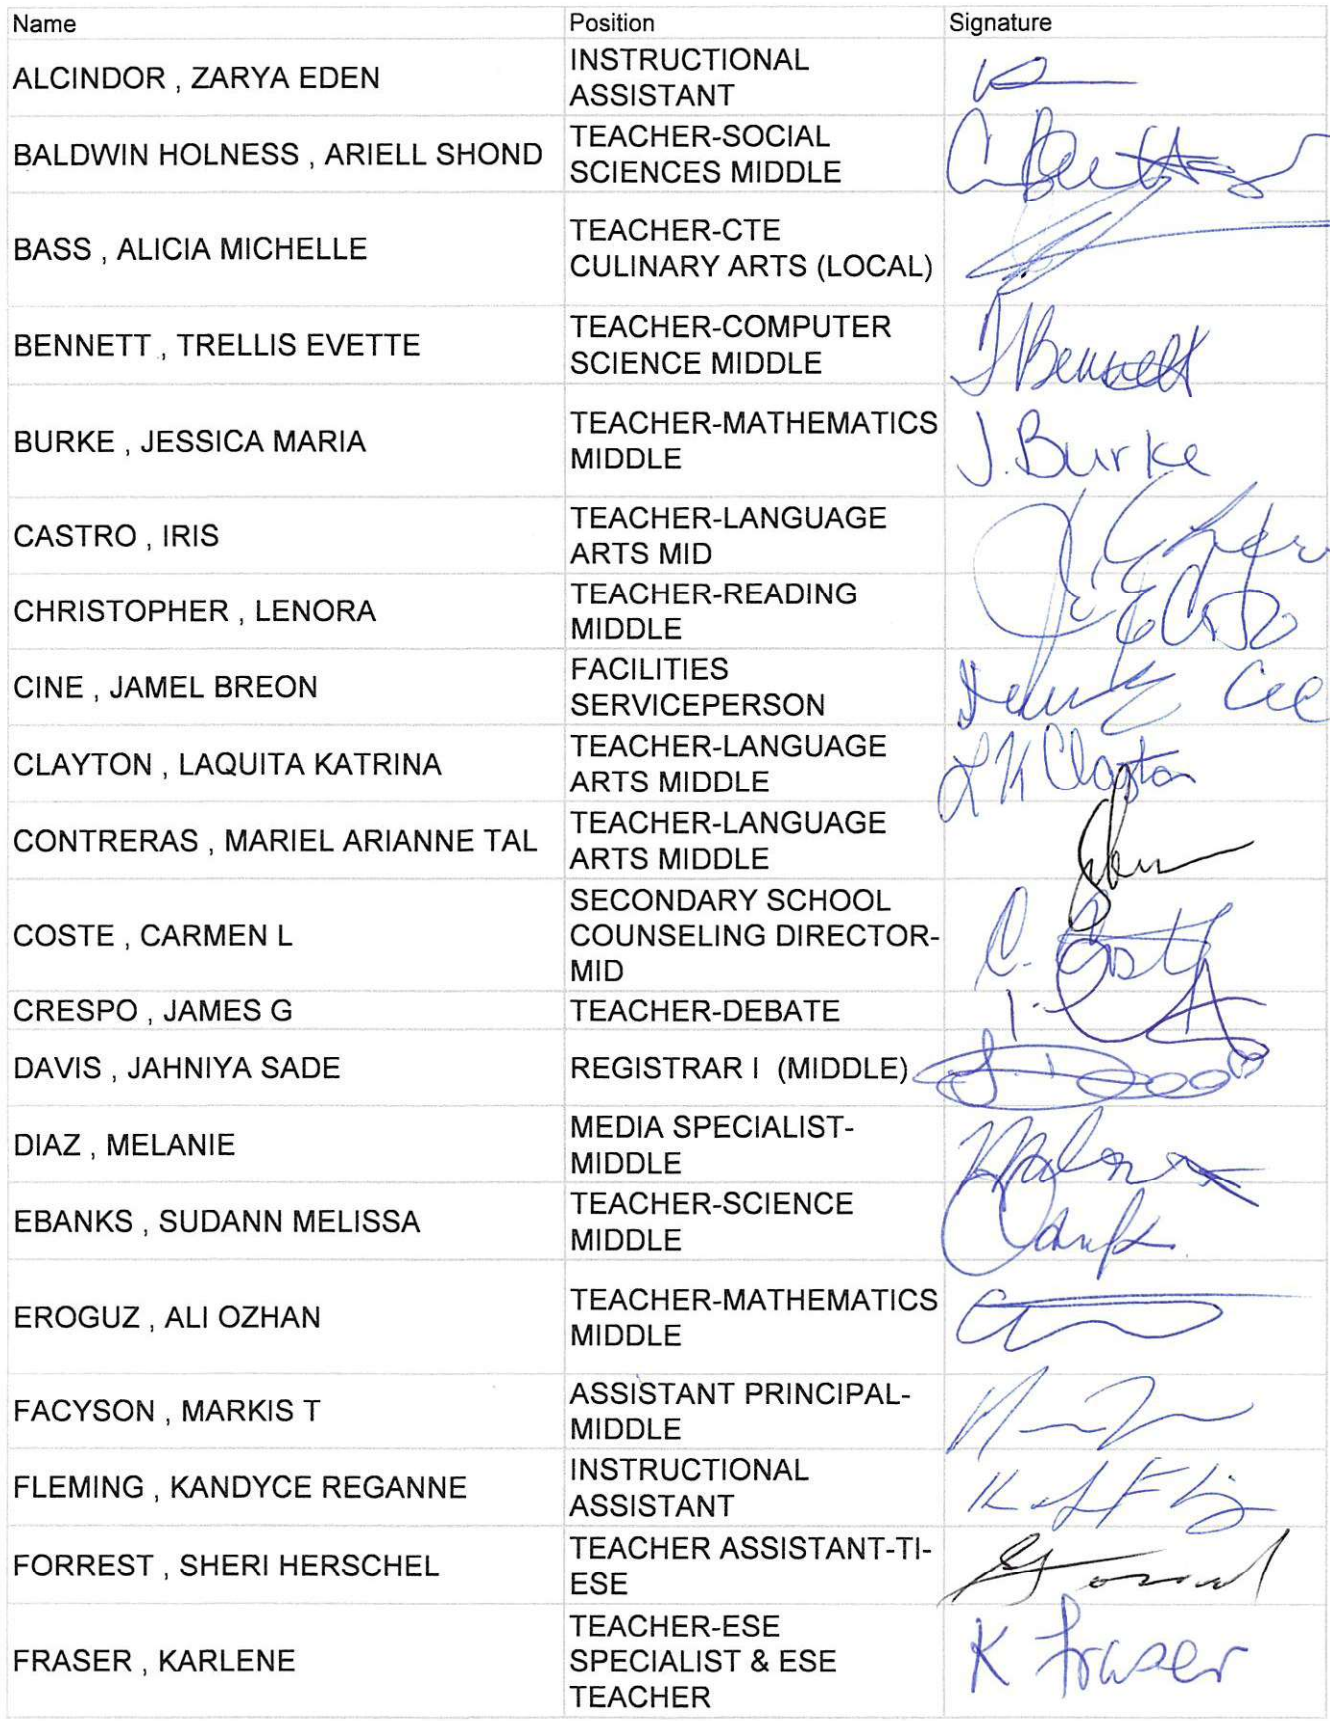 Name Position Signature
ALCINDOR , ZARYA EDEN INSTRUCTIONAL
ASSISTANT
BALDWIN HOLNESS , ARIELL SHOND TEACHER-SOCIAL
SCIENCES MIDDLE
BASS , ALICIA MICHELLE TEACHER-CTE
CULINARY ARTS (LOCAL)
BENNETT , TRELLIS EVETTE TEACHER-COMPUTER
SCIENCE MIDDLE
T Bennett
BURKE , JESSICA MARIA TEACHER-MATHEMATICS
MIDDLE
J. Burke
CASTRO , IRIS TEACHER-LANGUAGE
ARTS MID
CHRISTOPHER , LENORA TEACHER-READING
MIDDLE
CINE , JAMEL BREON FACILITIES
SERVICEPERSON
CLAYTON , LAQUITA KATRINA TEACHER-LANGUAGE
ARTS MIDDLE
L K Clayton
CONTRERAS , MARIEL ARIANNE TAL TEACHER-LANGUAGE
ARTS MIDDLE
COSTE , CARMEN L SECONDARY SCHOOL
COUNSELING DIRECTOR-
MID
C. Coste
CRESPO , JAMES G TEACHER-DEBATE
DAVIS , JAHNIYA SADE REGISTRAR I (MIDDLE)
DIAZ , MELANIE MEDIA SPECIALIST-
MIDDLE
EBANKS , SUDANN MELISSA TEACHER-SCIENCE
MIDDLE
EROGUZ , ALI OZHAN TEACHER-MATHEMATICS
MIDDLE
FACYSON , MARKIS T ASSISTANT PRINCIPAL-
MIDDLE
FLEMING , KANDYCE REGANNE INSTRUCTIONAL
ASSISTANT
FORREST , SHERI HERSCHEL TEACHER ASSISTANT-TI-
ESE
FRASER , KARLENE TEACHER-ESE
SPECIALIST & ESE
TEACHER
K Fraser